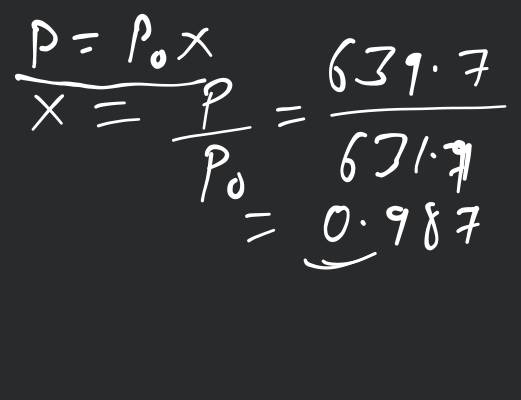 P = P₀x
x = P/P₀ = 639.7/631.9
= 0.987